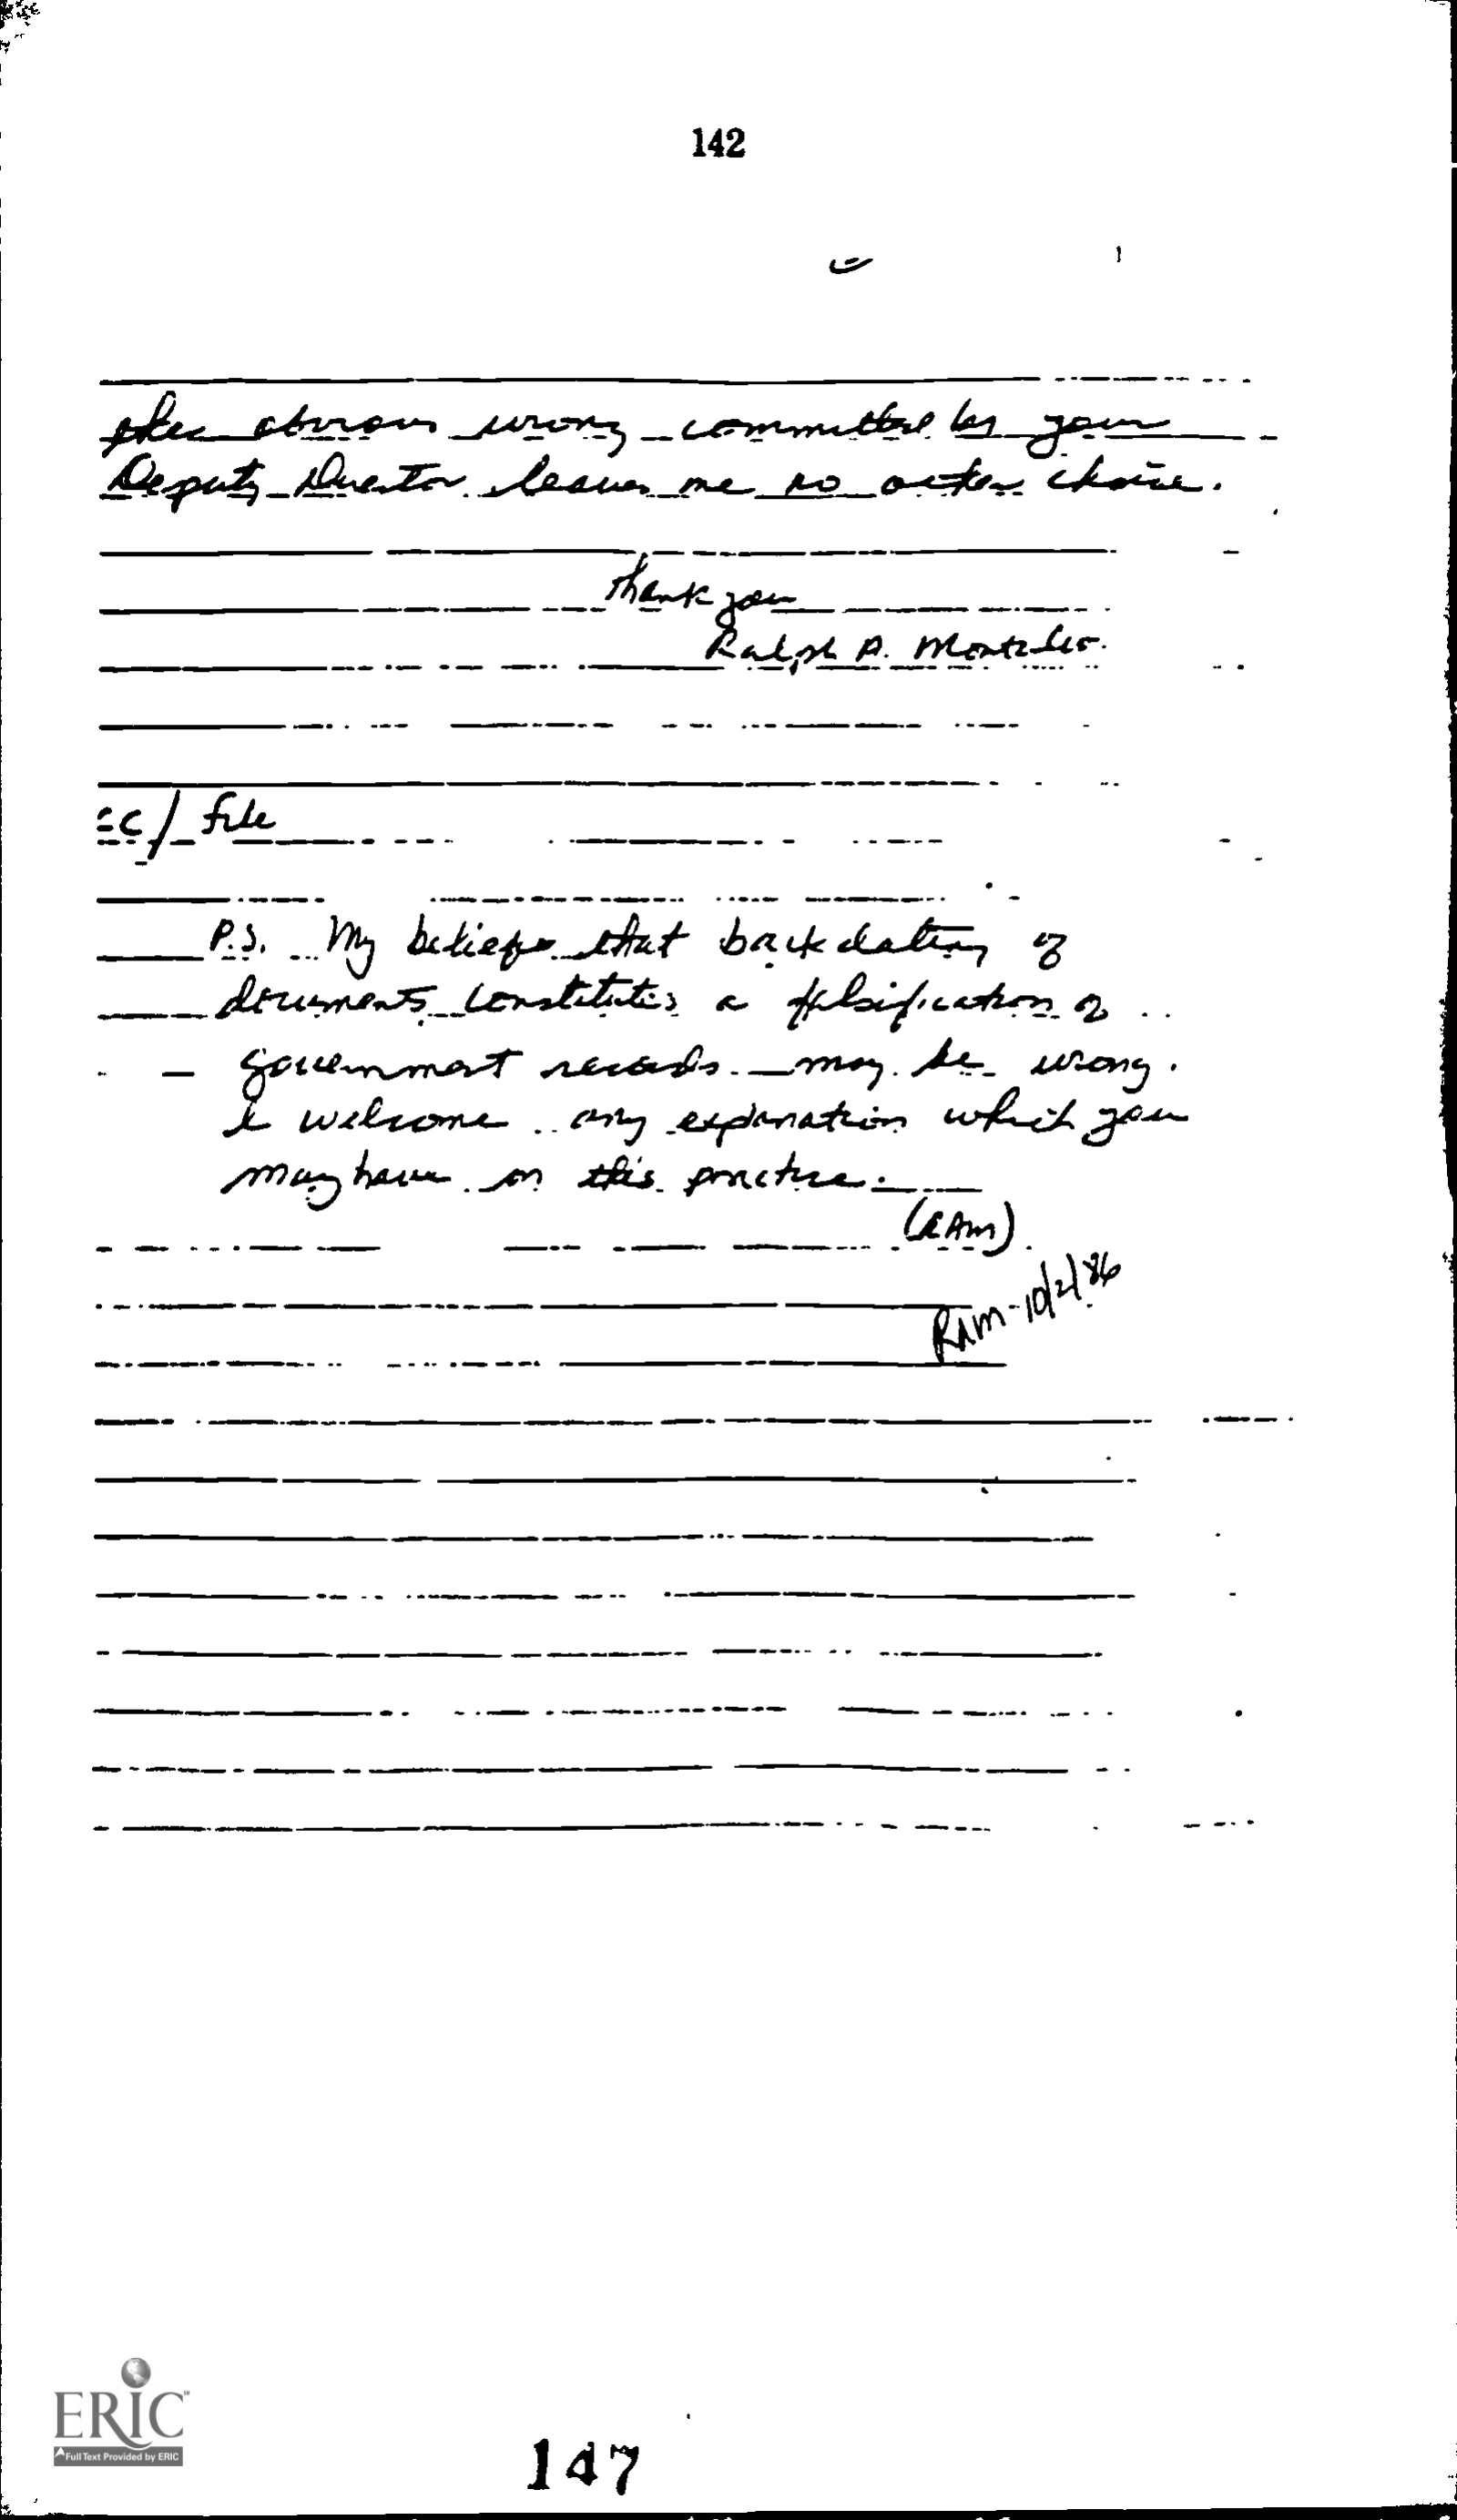 142
the obvious wrong committed by your
Deputy Director leaves me no other choice.
Thank you
Ralph A.
cc/ file
P.S. My beliefs that backdating of
documents constitutes a falsification of
government records may be wrong.
I welcome any explanation which you
may have on this practice.
(RAM)
RAM-10/2/86
ERIC
Full Text Provided by ERIC
147